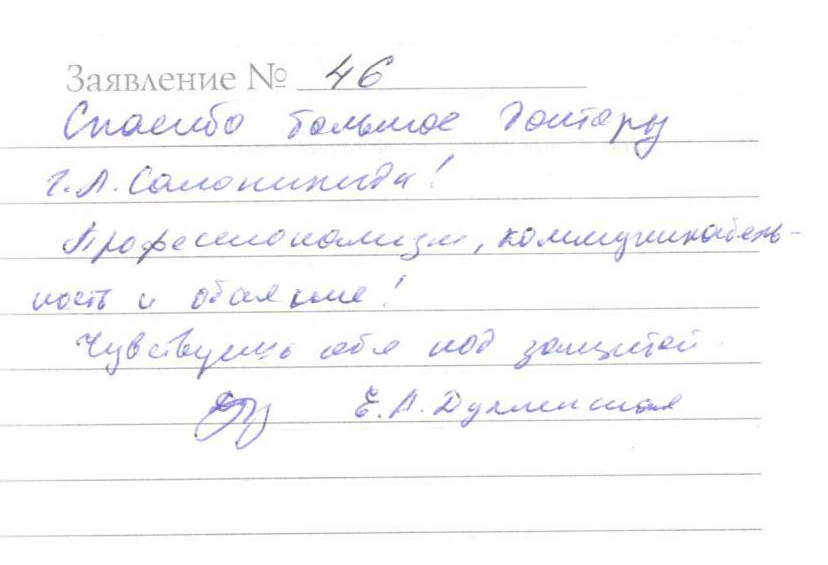 Заявление № 46
Спасибо большое Доктору
Г.Л. !
Профессионализм, коммуникабель-
ность и обаяние!
Чувствуешь себя под защитой
Е.А.